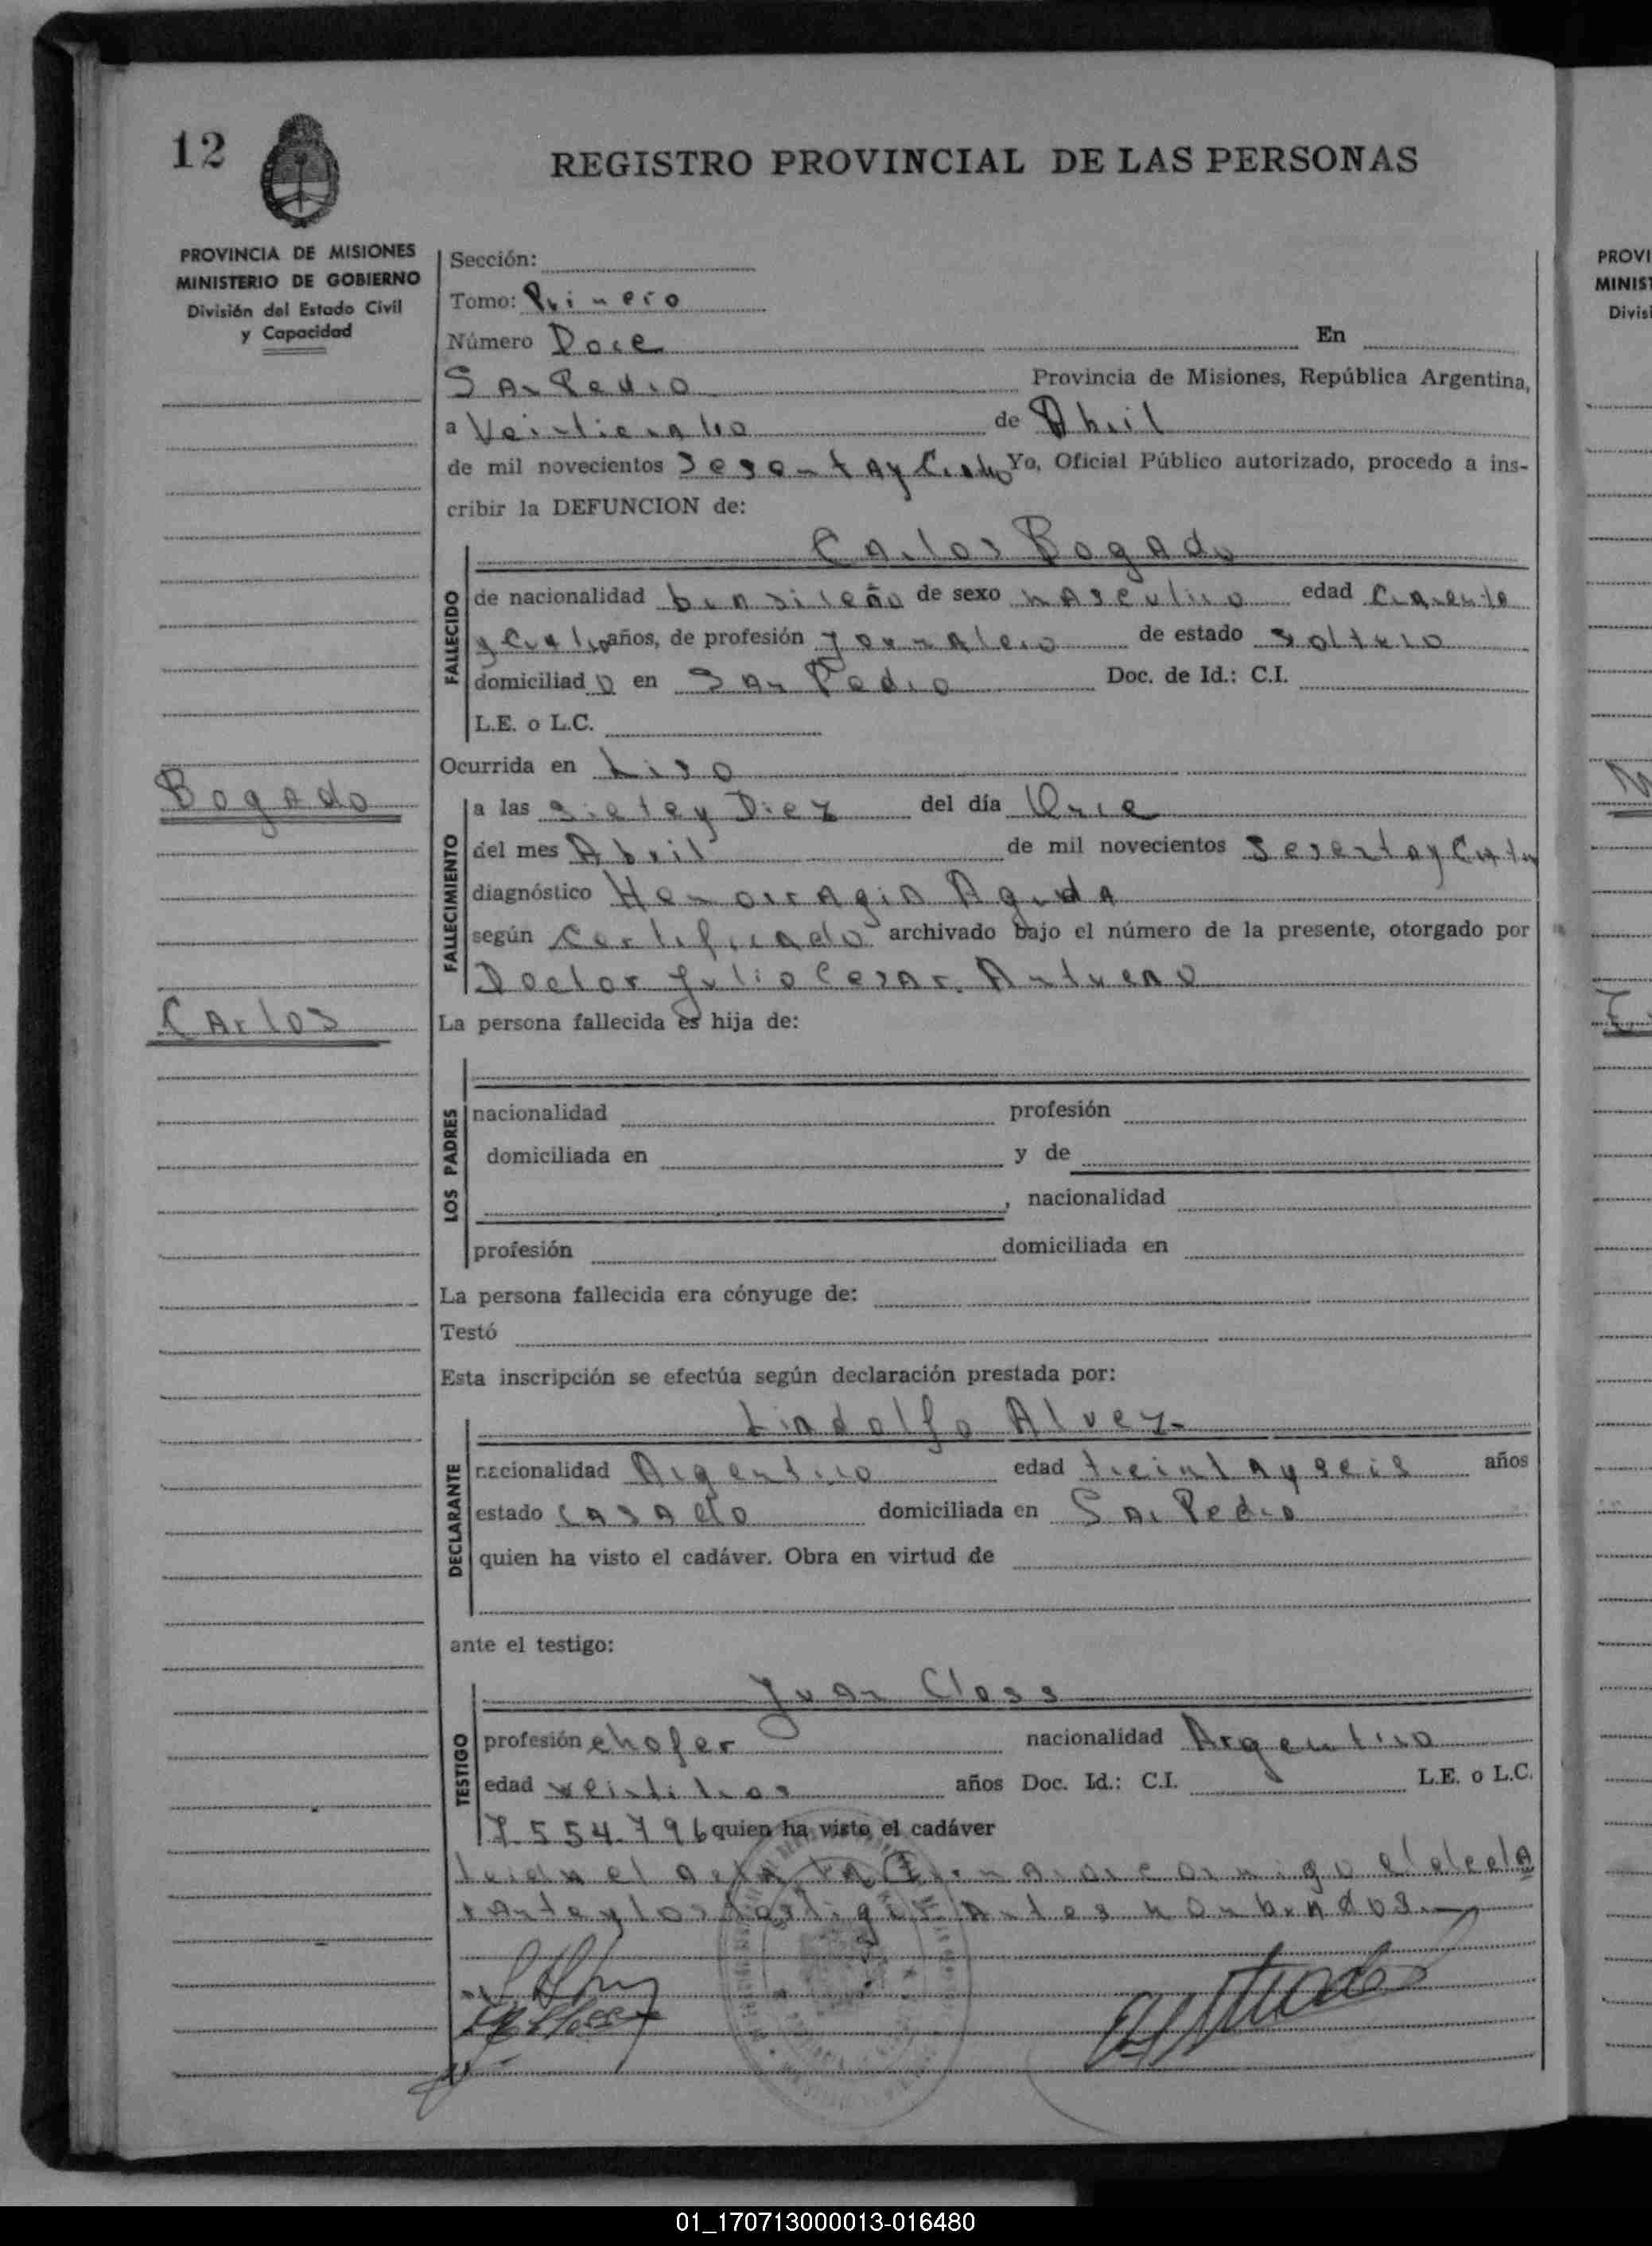 12
REGISTRO PROVINCIAL DE LAS PERSONAS
PROVINCIA DE MISIONES
MINISTERIO DE GOBIERNO
División del Estado Civil
y Capacidad
Sección:
Tomo: Primero
Número Doce En
San Pedro Provincia de Misiones, República Argentina,
a Veinticuatro de Abril
de mil novecientos Sesentay Cuatro Yo, Oficial Público autorizado, procedo a ins-
cribir la DEFUNCION de:
Carlos Bogado
FALLECIDO
de nacionalidad brasileño de sexo masculino edad
y Cuatro años, de profesión Jornalero de estado soltero
domiciliad o en San Pedro Doc. de Id.: C.I.
L.E. o L.C.
Ocurrida en
Bogado
FALLECIMIENTO
a las siete y Diez del día Once
del mes Abril de mil novecientos Sesentay Cuatro
diagnóstico Hemorragia Aguda
según Certificado archivado bajo el número de la presente, otorgado por
Doctor Julio Cesar
Carlos
La persona fallecida es hija de:
LOS PADRES
nacionalidad profesión
domiciliada en y de
, nacionalidad
profesión domiciliada en
La persona fallecida era cónyuge de:
Testó
Esta inscripción se efectúa según declaración prestada por:
Lindolfo Alvez
DECLARANTE
nacionalidad Argentino edad treintayseis años
estado casado domiciliada en San Pedro
quien ha visto el cadáver. Obra en virtud de
ante el testigo:
Juan Closs
TESTIGO
profesión chofer nacionalidad Argentino
edad años Doc. Id.: C.I. L.E. o L.C.
7554796 quien ha visto el cadáver
leida el acta la Firmaron conmigo el decla
rante y los testigos antes nombrados.
PROVI
MINIST
Divisi
01_170713000013-016480